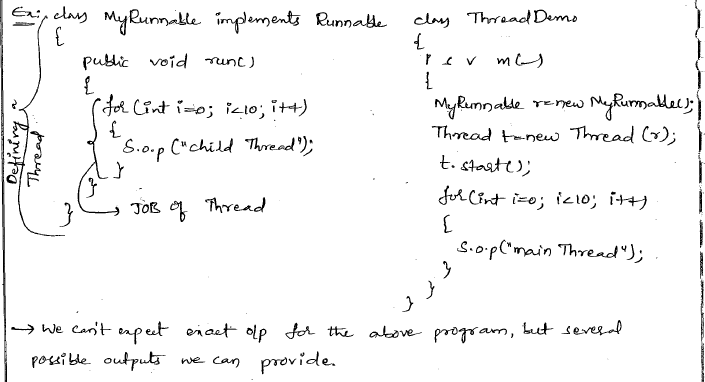 Ex:
class MyRunnable implements Runnable
{
public void run()
{
for (int i=0; i<10; i++)
{
S.o.p ("child Thread");
}
}
}
→ JOB of Thread
Defining a
Thread
class ThreadDemo
{
P s v m(—)
{
MyRunnable r=new MyRunnable();
Thread t=new Thread (r);
t.start();
for (int i=0; i<10; i++)
{
S.o.p("main Thread");
}
}
}
→ We can't expect exact o/p for the above program, but several
possible outputs we can provide.